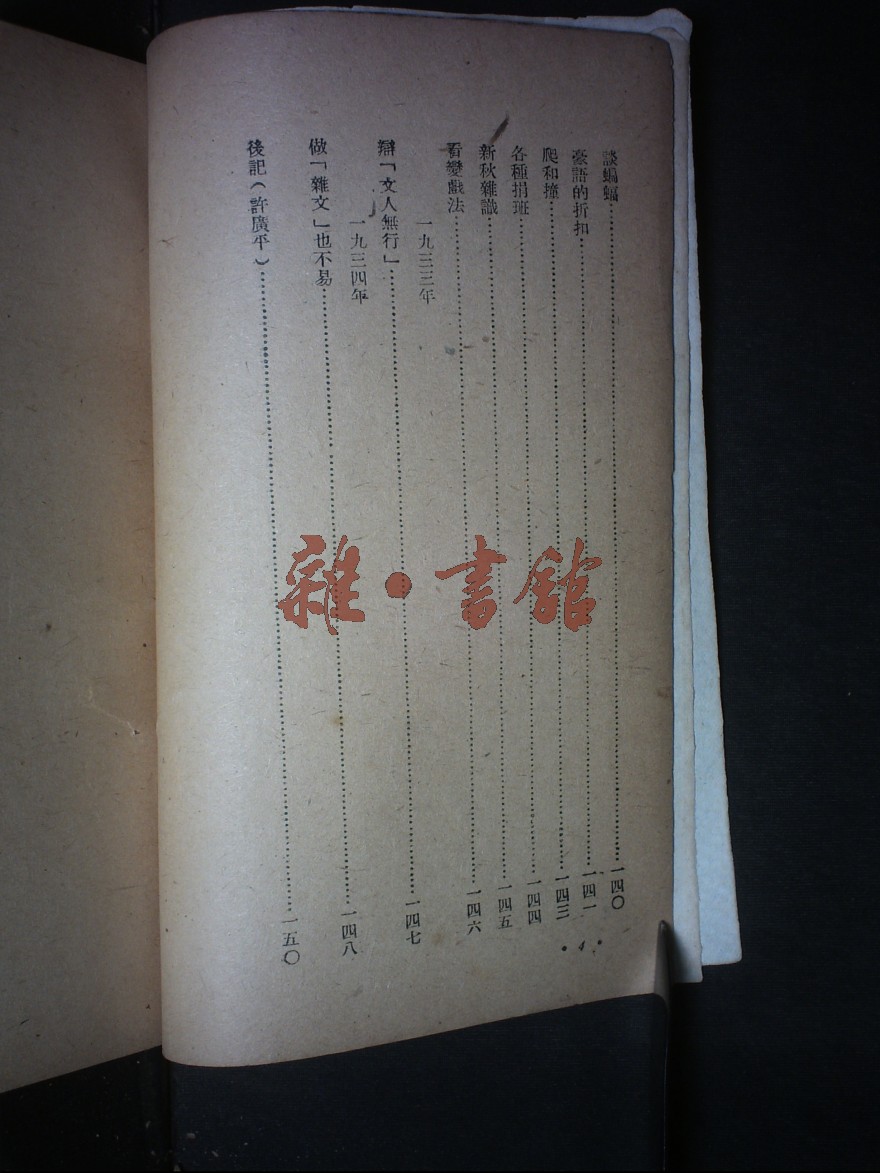 談蝙蝠……一四〇
豪語的折扣……一四一
爬和撞……一四三
各種捐班……一四四
新秋雜識……一四五
看變戲法……一四六
一九三三年
辯「文人無行」……一四七
一九三四年
做「雜文」也不易……一四八
後記（許廣平）……一五〇
• 4 •
雜•書館